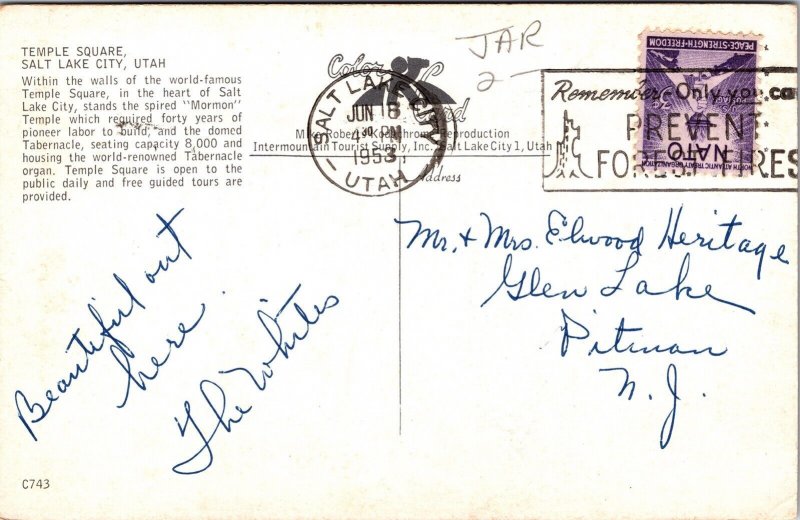 TEMPLE SQUARE,
SALT LAKE CITY, UTAH
Within the walls of the world-famous
Temple Square, in the heart of Salt
Lake City, stands the spired "Mormon"
Temple which required forty years of
pioneer labor to build, and the domed
Tabernacle, seating capacity 8,000 and
housing the world-renowned Tabernacle
organ. Temple Square is open to the
public daily and free guided tours are
provided.
JAR
2-
Color
SALT LAKE CITY
JUN 18
4 PM
1953
UTAH
Reproduction
Intermountain Tourist Supply, Inc. Salt Lake City 1, Utah
Address
PEACE-STRENGTH-FREEDOM
3¢
POSTAGE
NATO
NORTH ATLANTIC TREATY ORGANIZATION
Remember Only you ca
PREVENT
FOREST FIRES
Mr. & Mrs. Elwood Heritage
Glen Lake
Pitman
N. J.
Beautiful out
here.
The Whites
C743